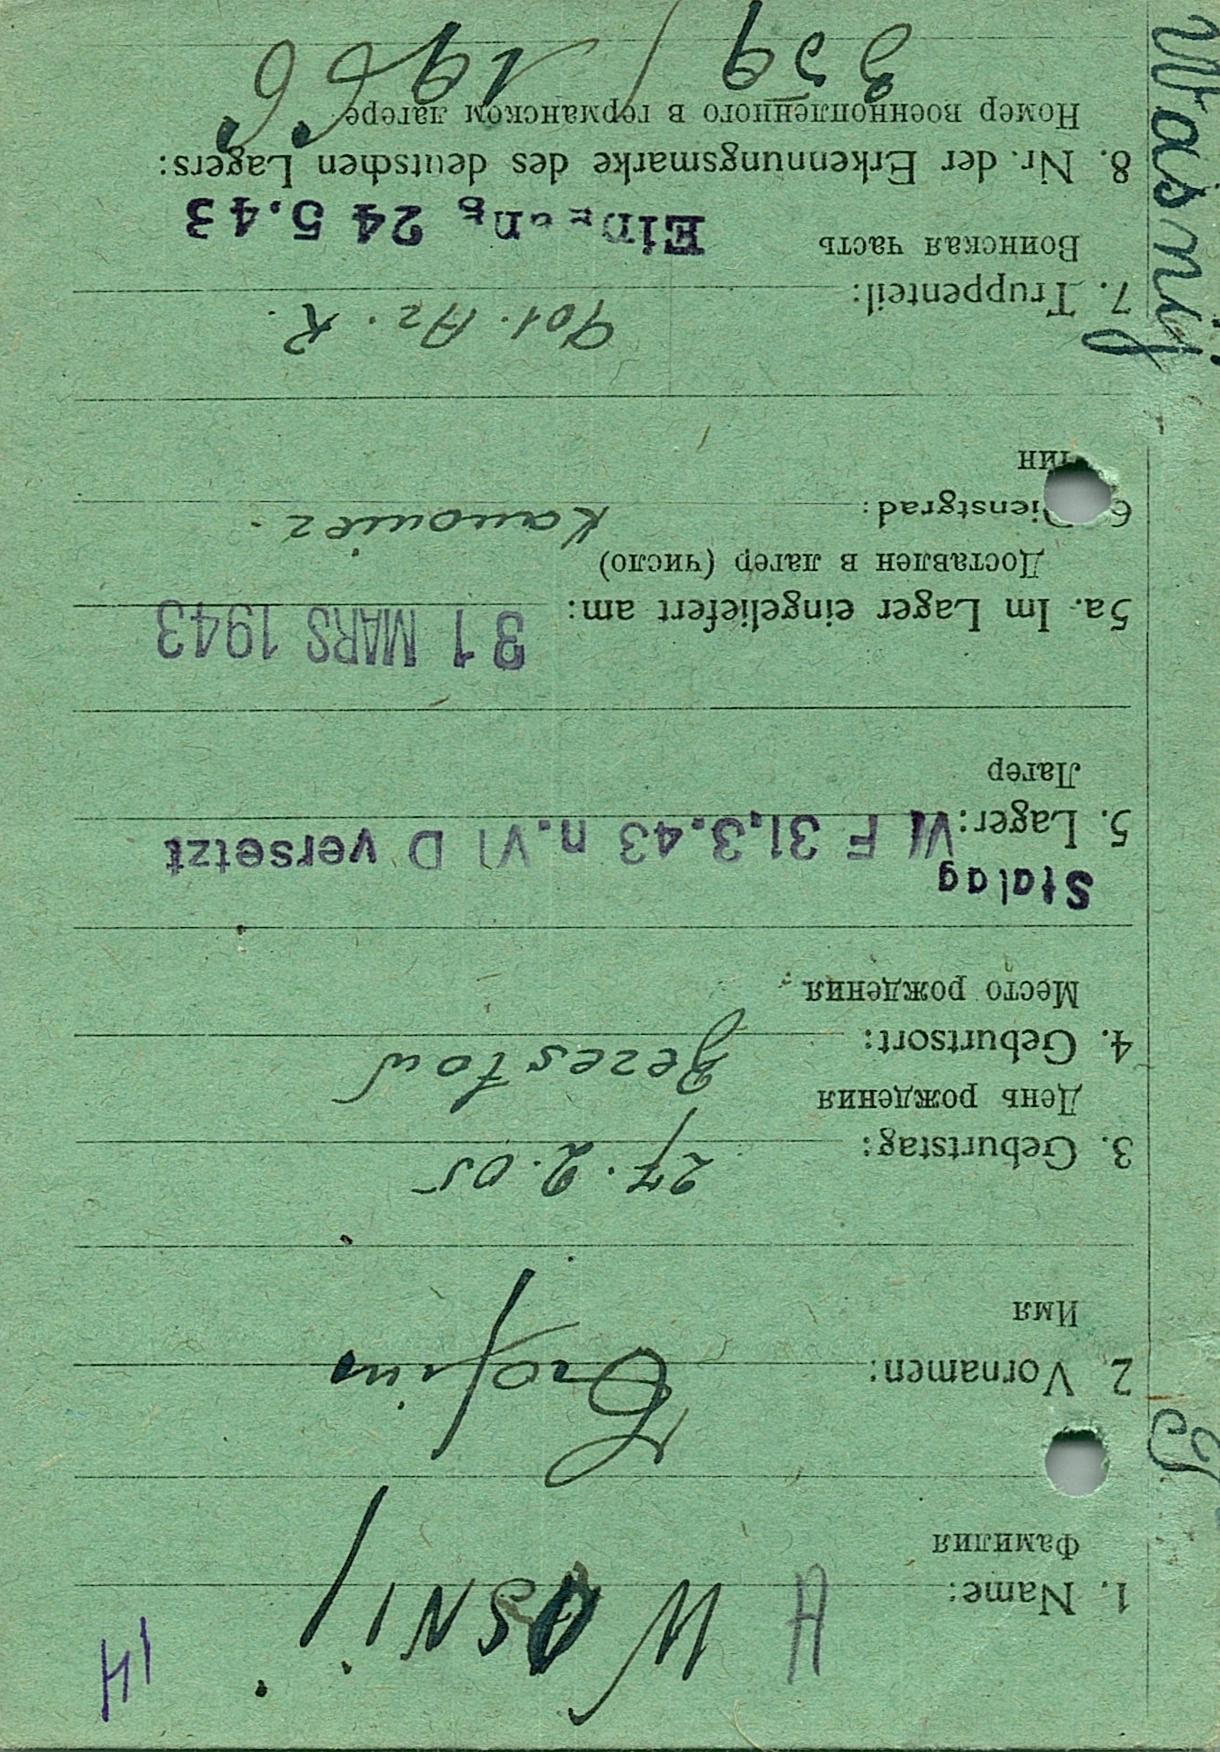 14
1. Name: WASNIJ
Фамилия
2. Vornamen: Trofim
Имя
3. Geburtstag: 27.2.05
День рождения
4. Geburtsort:
Место рождения
Stalag
5. Lager: VI F 31.3.43 n. VI D versetzt
Лагер
5a. Im Lager eingeliefert am: 31 MARS 1943
Доставлен в лагер (число)
6. Dienstgrad: Kanonier.
Чин
7. Truppenteil: 901. Az. R.
Воинская часть
24 5.43
8. Nr. der Erkennungsmarke des deutschen Lagers:
Номер военнопленного в германском лагере
359/1966
Wasnij